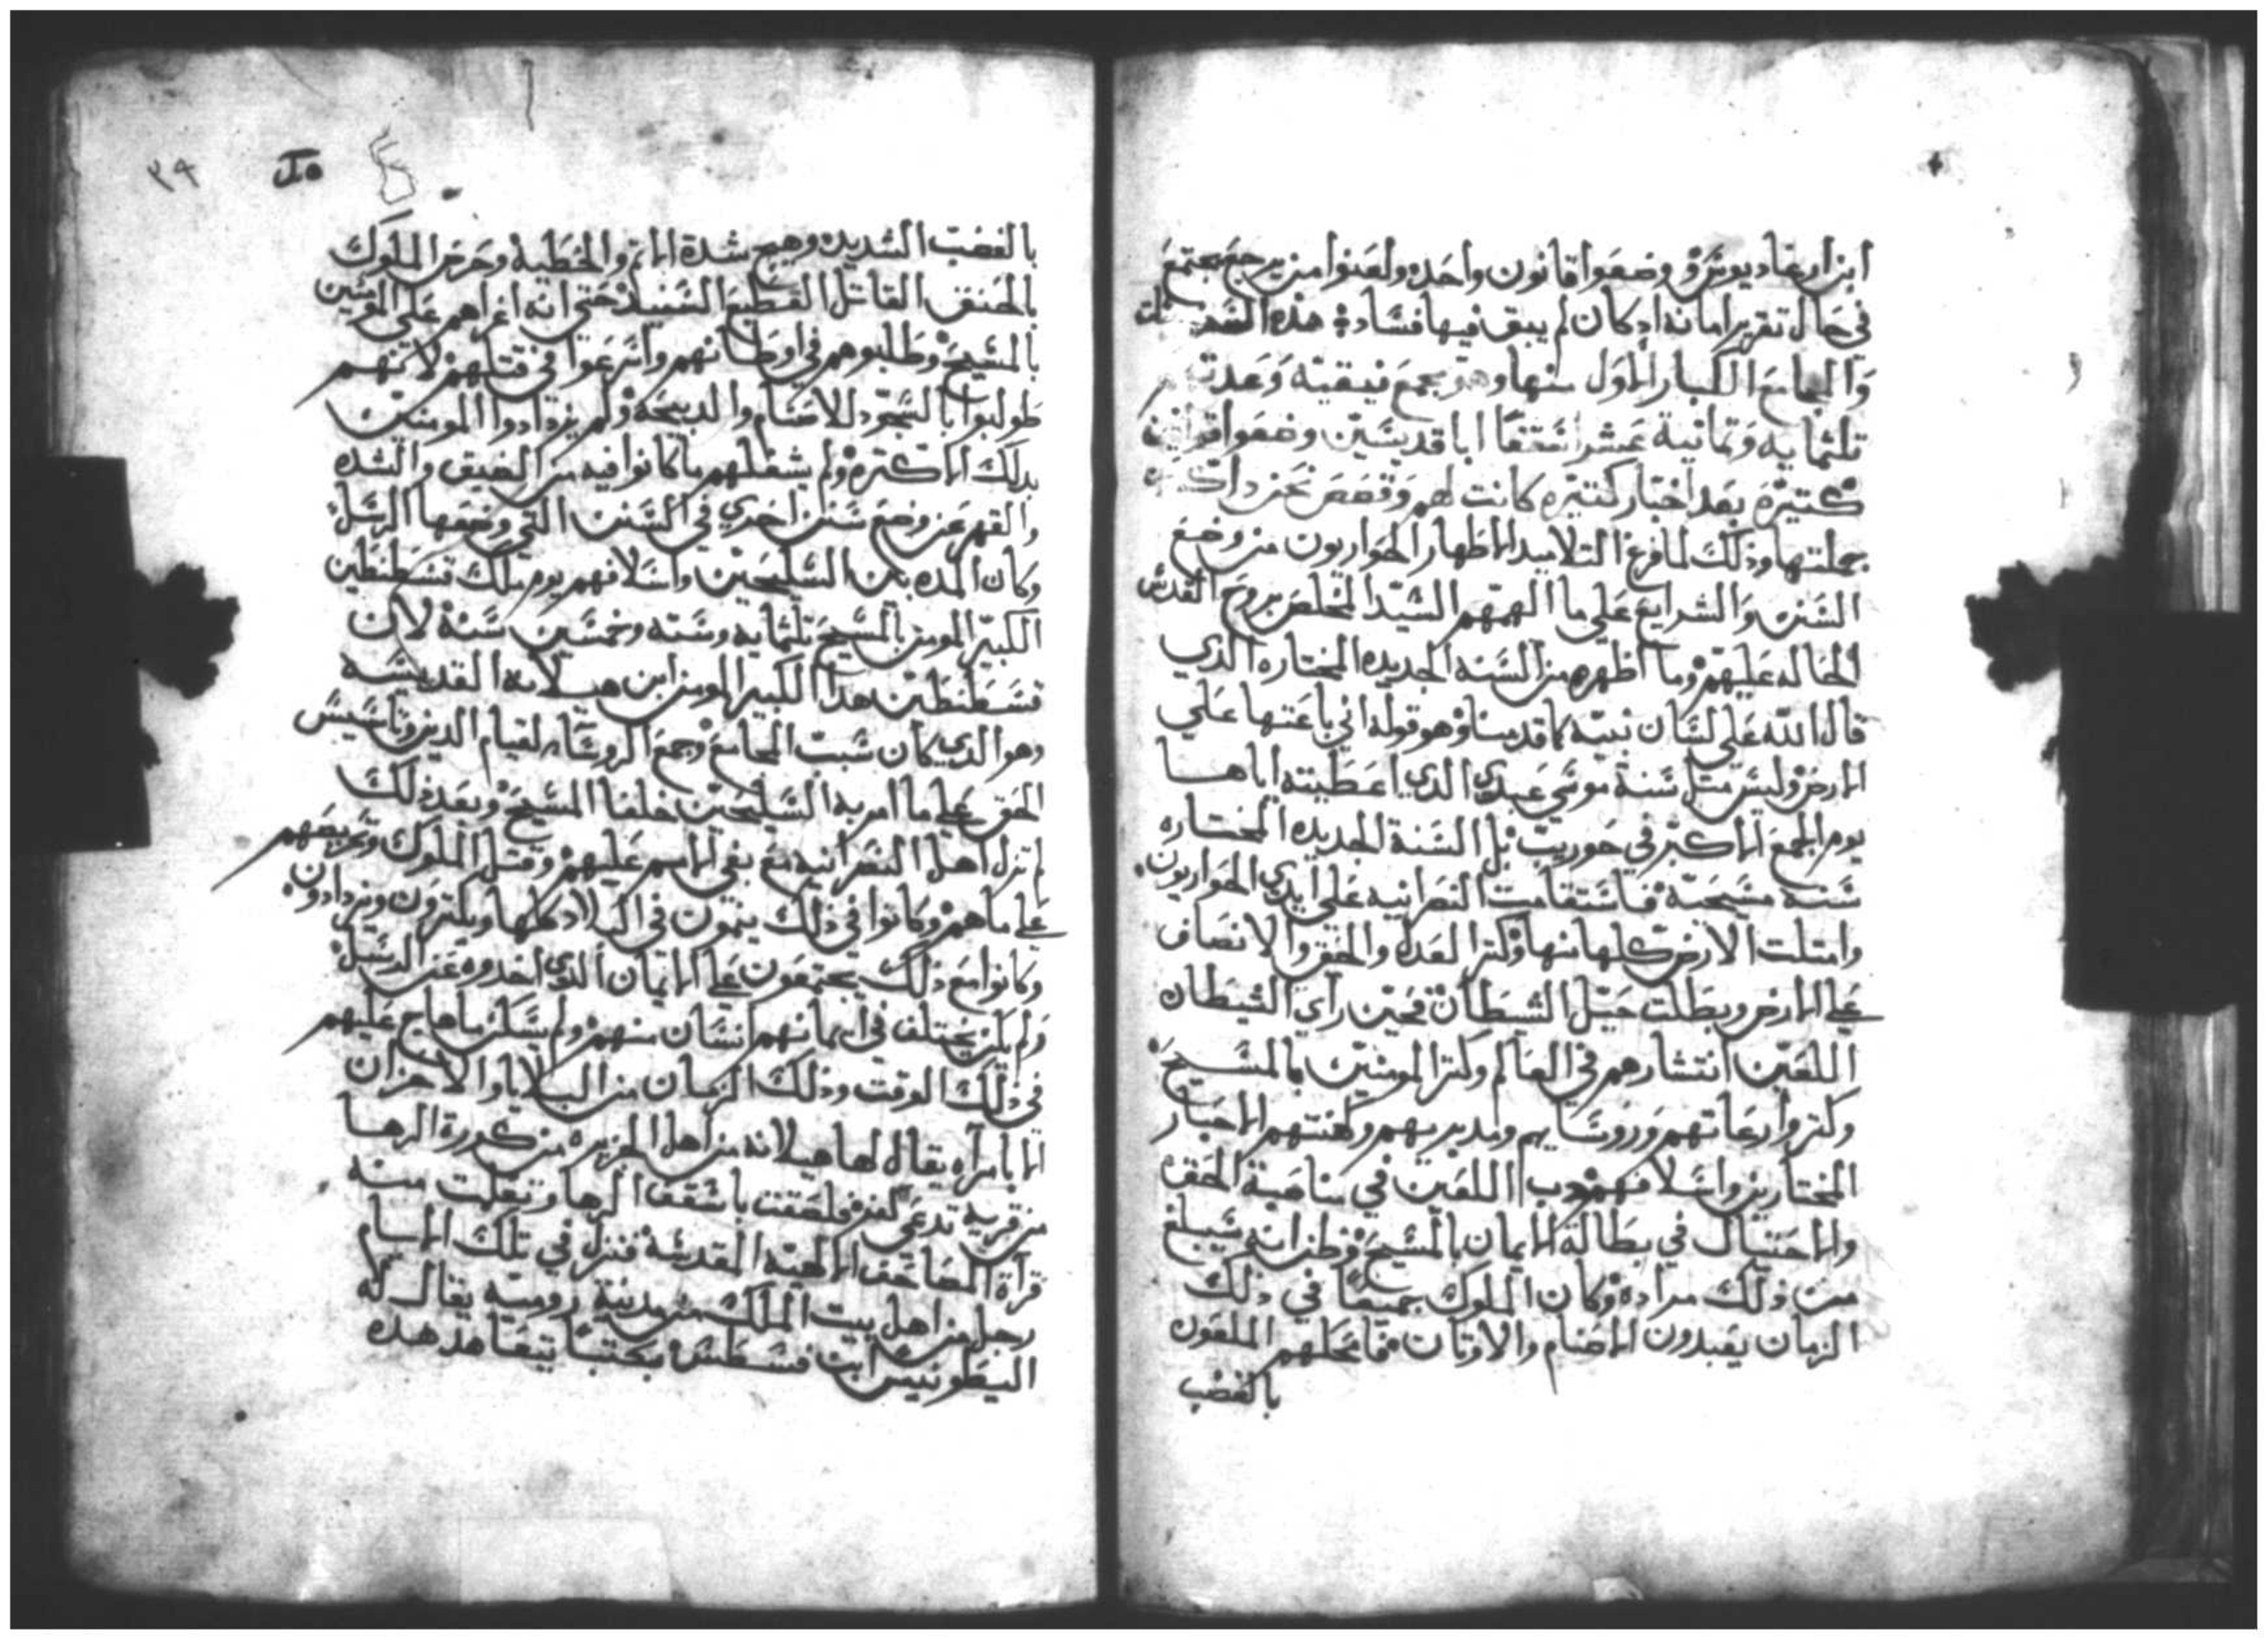 ابن ارعاديوس وضعوا قانون واحده ولعنوا من يرجع يجتمع
في حال تقرير امانه اد كان لم يبق فيها فساد هذه
والمجامع الكبار الاول منها وهو مجمع نيقيه وعدتهم
تلثمايه وتمانية عشر اسقفا ابا قديسين وضعوا قوانين
كتيره بعد اخبار كتيره كانت لهم وقصص نحن داكره
جملتها وذلك لما فرغ التلاميد الاطهار الحواريون من وضع
السنن والشرايع علي ما الهمهم السيد المخلص بروح القدس
الحاله عليهم وما اظهره من السنه الجديده المختاره الذي
قال الله علي لسان نبيه كما قدمنا وهو قوله اني باعتها علي
الارض وليس متل سنة موسي عبدي الدي اعطيته اياها
يوم الجمع الاكبر في حوريب بل السنة الجديده المختاره
سنه مسيحيه فاستقامت النصرانيه علي ايدي الحواريون
وامتلت الارض كلها منها وكتر العدل والحق والانصاف
علي الارض وبطلت حيل الشيطان فحين راي الشيطان
اللعين انتشارهم في العالم وكتر المومنين بالمسيح
وكتروا رعاتهم وروسايهم ومدبريهم وكهنتهم الاحبار
المختارين واسلافهم دب اللعين في مناصبة الحق
والاحتيال في بطالة الايمان بالمسيح وظن انه سيبلغ
من ذلك مراده وكان الملوك جميعا في ذلك
الزمان يعبدون الاصنام والاوتان فامحلهم الملعون
بالغضب
٣٩
بالغضب الشديد وهيج شدة الاتم والخطية وحرض الملوك
بالحنق القاتل الفظيع الشنيد حتي انه اغراهم علي المومنين
بالمسيح وطلبوهم في اوطانهم واسرعوا في قتلهم لانهم
طولبوا بالسجود للاصنام والدبيحه ولم يزدادوا المومنين
بدلك الا كتره ولم يشغلهم ما كانوا فيه من الضيق والشده
والقهر عن وضع سنن اخري في السنن التي وضعها الرسل
وكان المده بين السليحين واسلافهم يوم ملك قسطنطين
الكبير المومن بالمسيح تلثمايه وسته وخمسين سنة لان
قسطنطين هدا الكبير المومن ابن هيلانه القديسه
وهو الدي كان سبب المجامع وجمع الروسا لقيام الدين وتاسيس
الحق علي ما امر به السليحين خلفا المسيح وبعد ذلك
لم تزل اهل النصرانيه مع بغي الامم عليهم وقتل الملوك وتحريضهم
علي ما هم وكانوا في ذلك ينمون في البلاد كلها ويكترون ويزدادون
وكانوا مع ذلك يجتمعون علي الايمان الدي اخدوه عن الرسل
ولم يكن يختلف في ايمانهم انسان منهم ولم يسكن ما هاج عليهم
في ذلك الوقت وذلك الزمان من البلايا والاحزان
الا بامراه يقال لها هيلانه من اهل الجزيره من كورة الرها
من قرية تدعي كفر فلصقت باسقف الرها وتعلمت منه
قراة المصاحف الالهيه المقدسة فنزل في تلك الايام
رجل من اهل بيت الملك من مدينة رومية يقال له